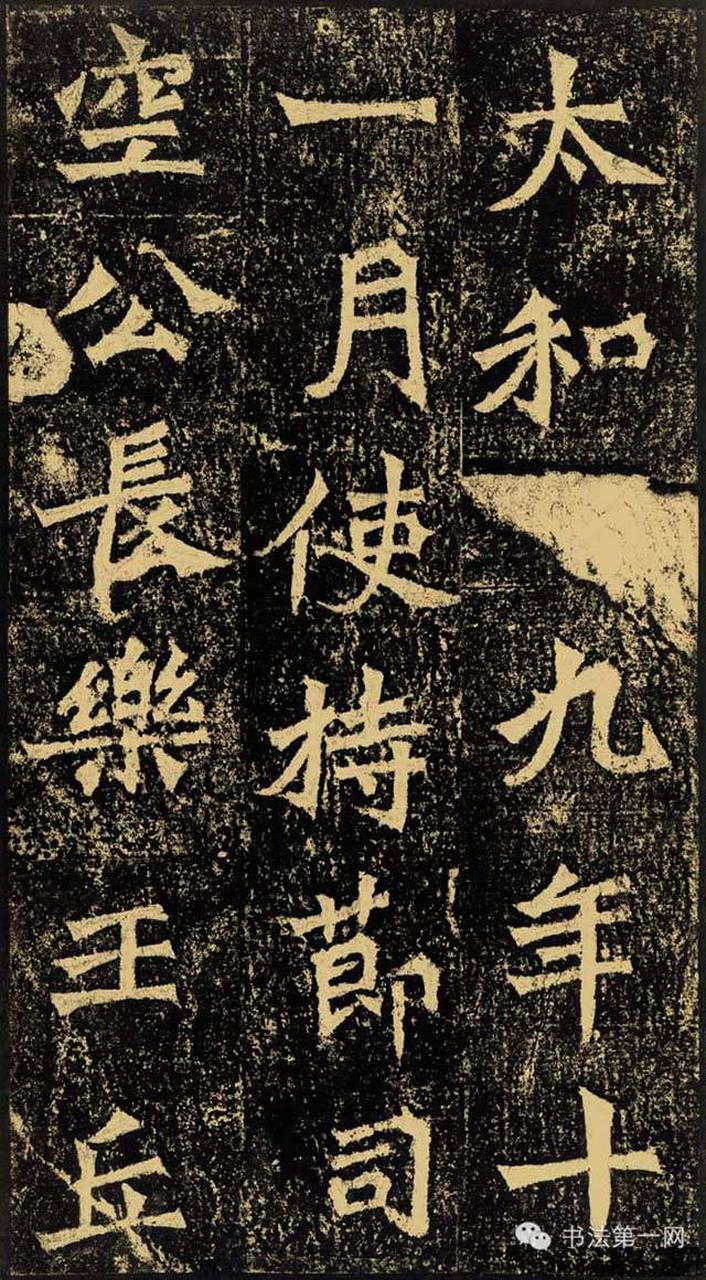 太和九年十
一月使持節司
空公長樂王丘
书法第一网